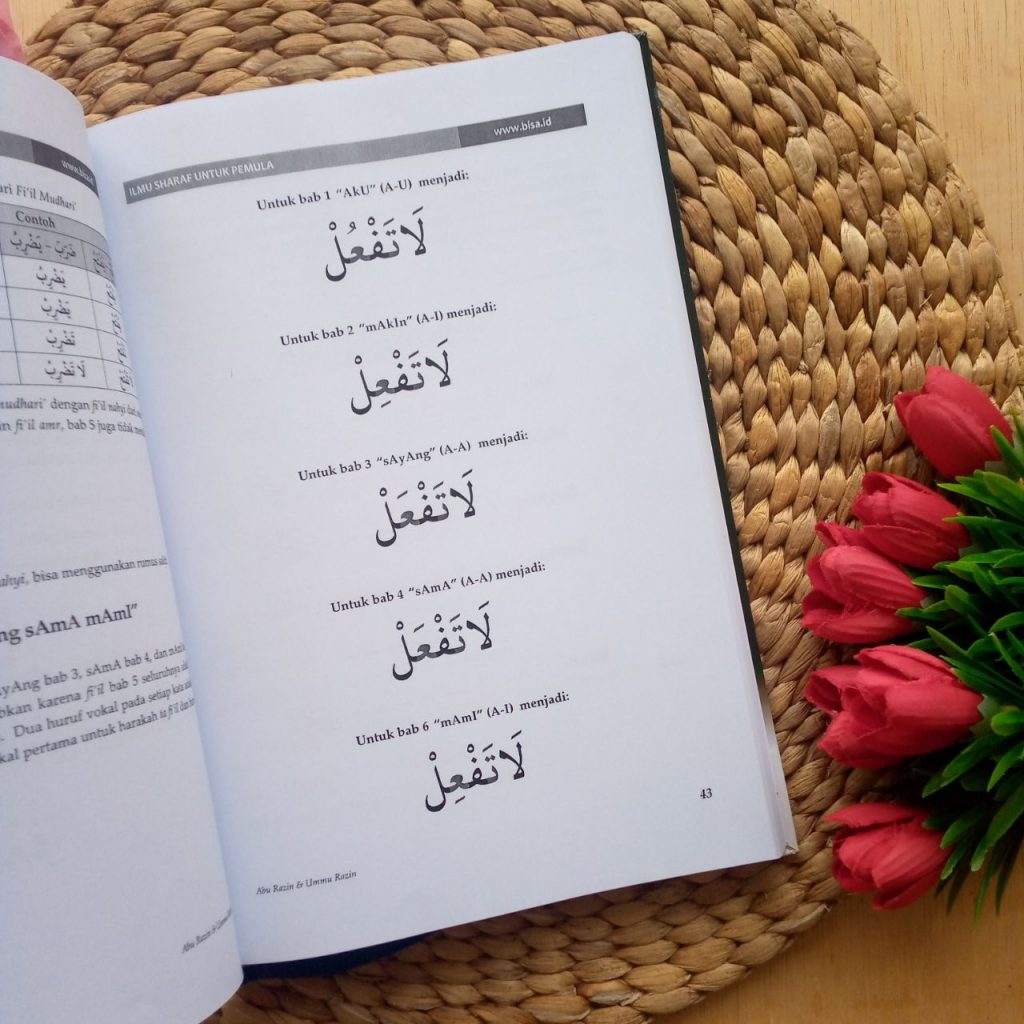 www.bisa
ari Fi'il Mudhari'
Contoh
ضَرَبَ - يَضْرِبُ
يَضْرِبُ
يَضْرِبْ
تَضْرِبْ
لَا تَضْرِبْ
mudhari' dengan fi'il nahyi dari
in fi'il amr, bab 5 juga tidak
ahyi, bisa menggunakan rumus
ng sAmA mAmI"
yAng bab 3, sAmA bab 4, dan
bkan karena fi'il bab 5 seluruhnya
. Dua huruf vokal pada setiap kata
kal pertama untuk harakah ta fi'il dan
Abu Razin &
ILMU SHARAF UNTUK PEMULA www.bisa.id
Untuk bab 1 "AkU" (A-U) menjadi:
لَا تَفْعُلْ
Untuk bab 2 "mAkIn" (A-I) menjadi:
لَا تَفْعِلْ
Untuk bab 3 "sAyAng" (A-A) menjadi:
لَا تَفْعَلْ
Untuk bab 4 "sAmA" (A-A) menjadi:
لَا تَفْعَلْ
Untuk bab 6 "mAmI" (A-I) menjadi:
لَا تَفْعِلْ
43
Abu Razin & Ummu Razin